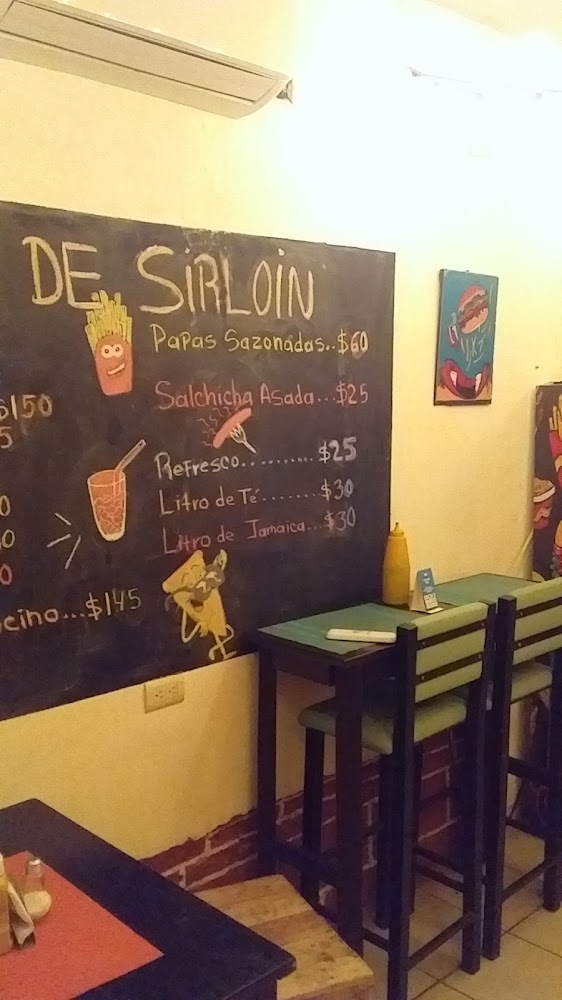 DE SIRLOIN
Papas Sazonadas..$60
$150
Salchicha Asada...$25
5
Refresco..........$25
Litro de Té........$30
Litro de Jamaica...$30
0
0
0
cino...$145